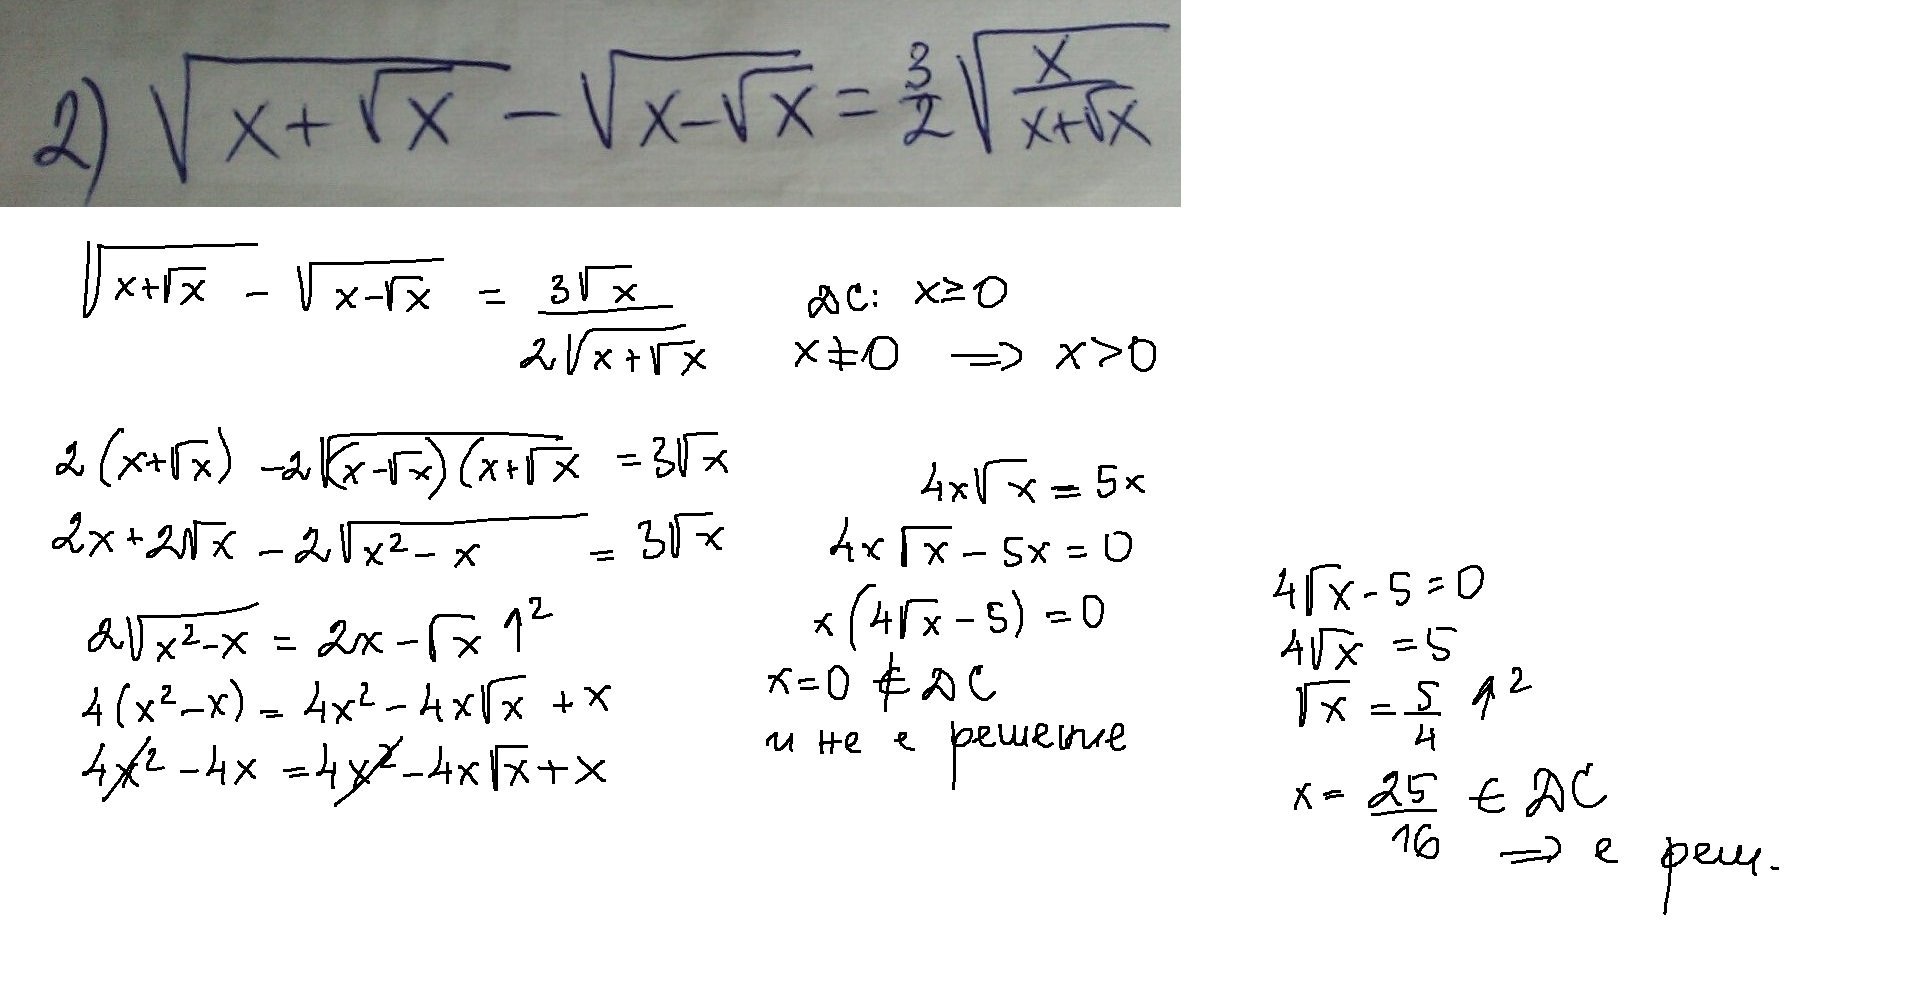 2) √(x+√x) - √(x-√x) = 3/2 √(x/(x+√x))
√(x+√x) - √(x-√x) = 3√x/(2√(x+√x))
ДС: x≥0
x≠0 ⟹ x>0
2(x+√x) -2√((x-√x)(x+√x) = 3√x
2x+2√x - 2√(x²- x) = 3√x
2√(x²-x) = 2x-√x ↑²
4(x²-x) = 4x²-4x√x +x
4x²-4x =4x²-4x√x+x
4x√x = 5x
4x√x - 5x = 0
x(4√x - 5) = 0
x=0 ∉ ДС
и не е решение
4√x - 5 = 0
4√x = 5
√x = 5/4 ↑²
x = 25/16 ∈ ДС
⟹ е реш.